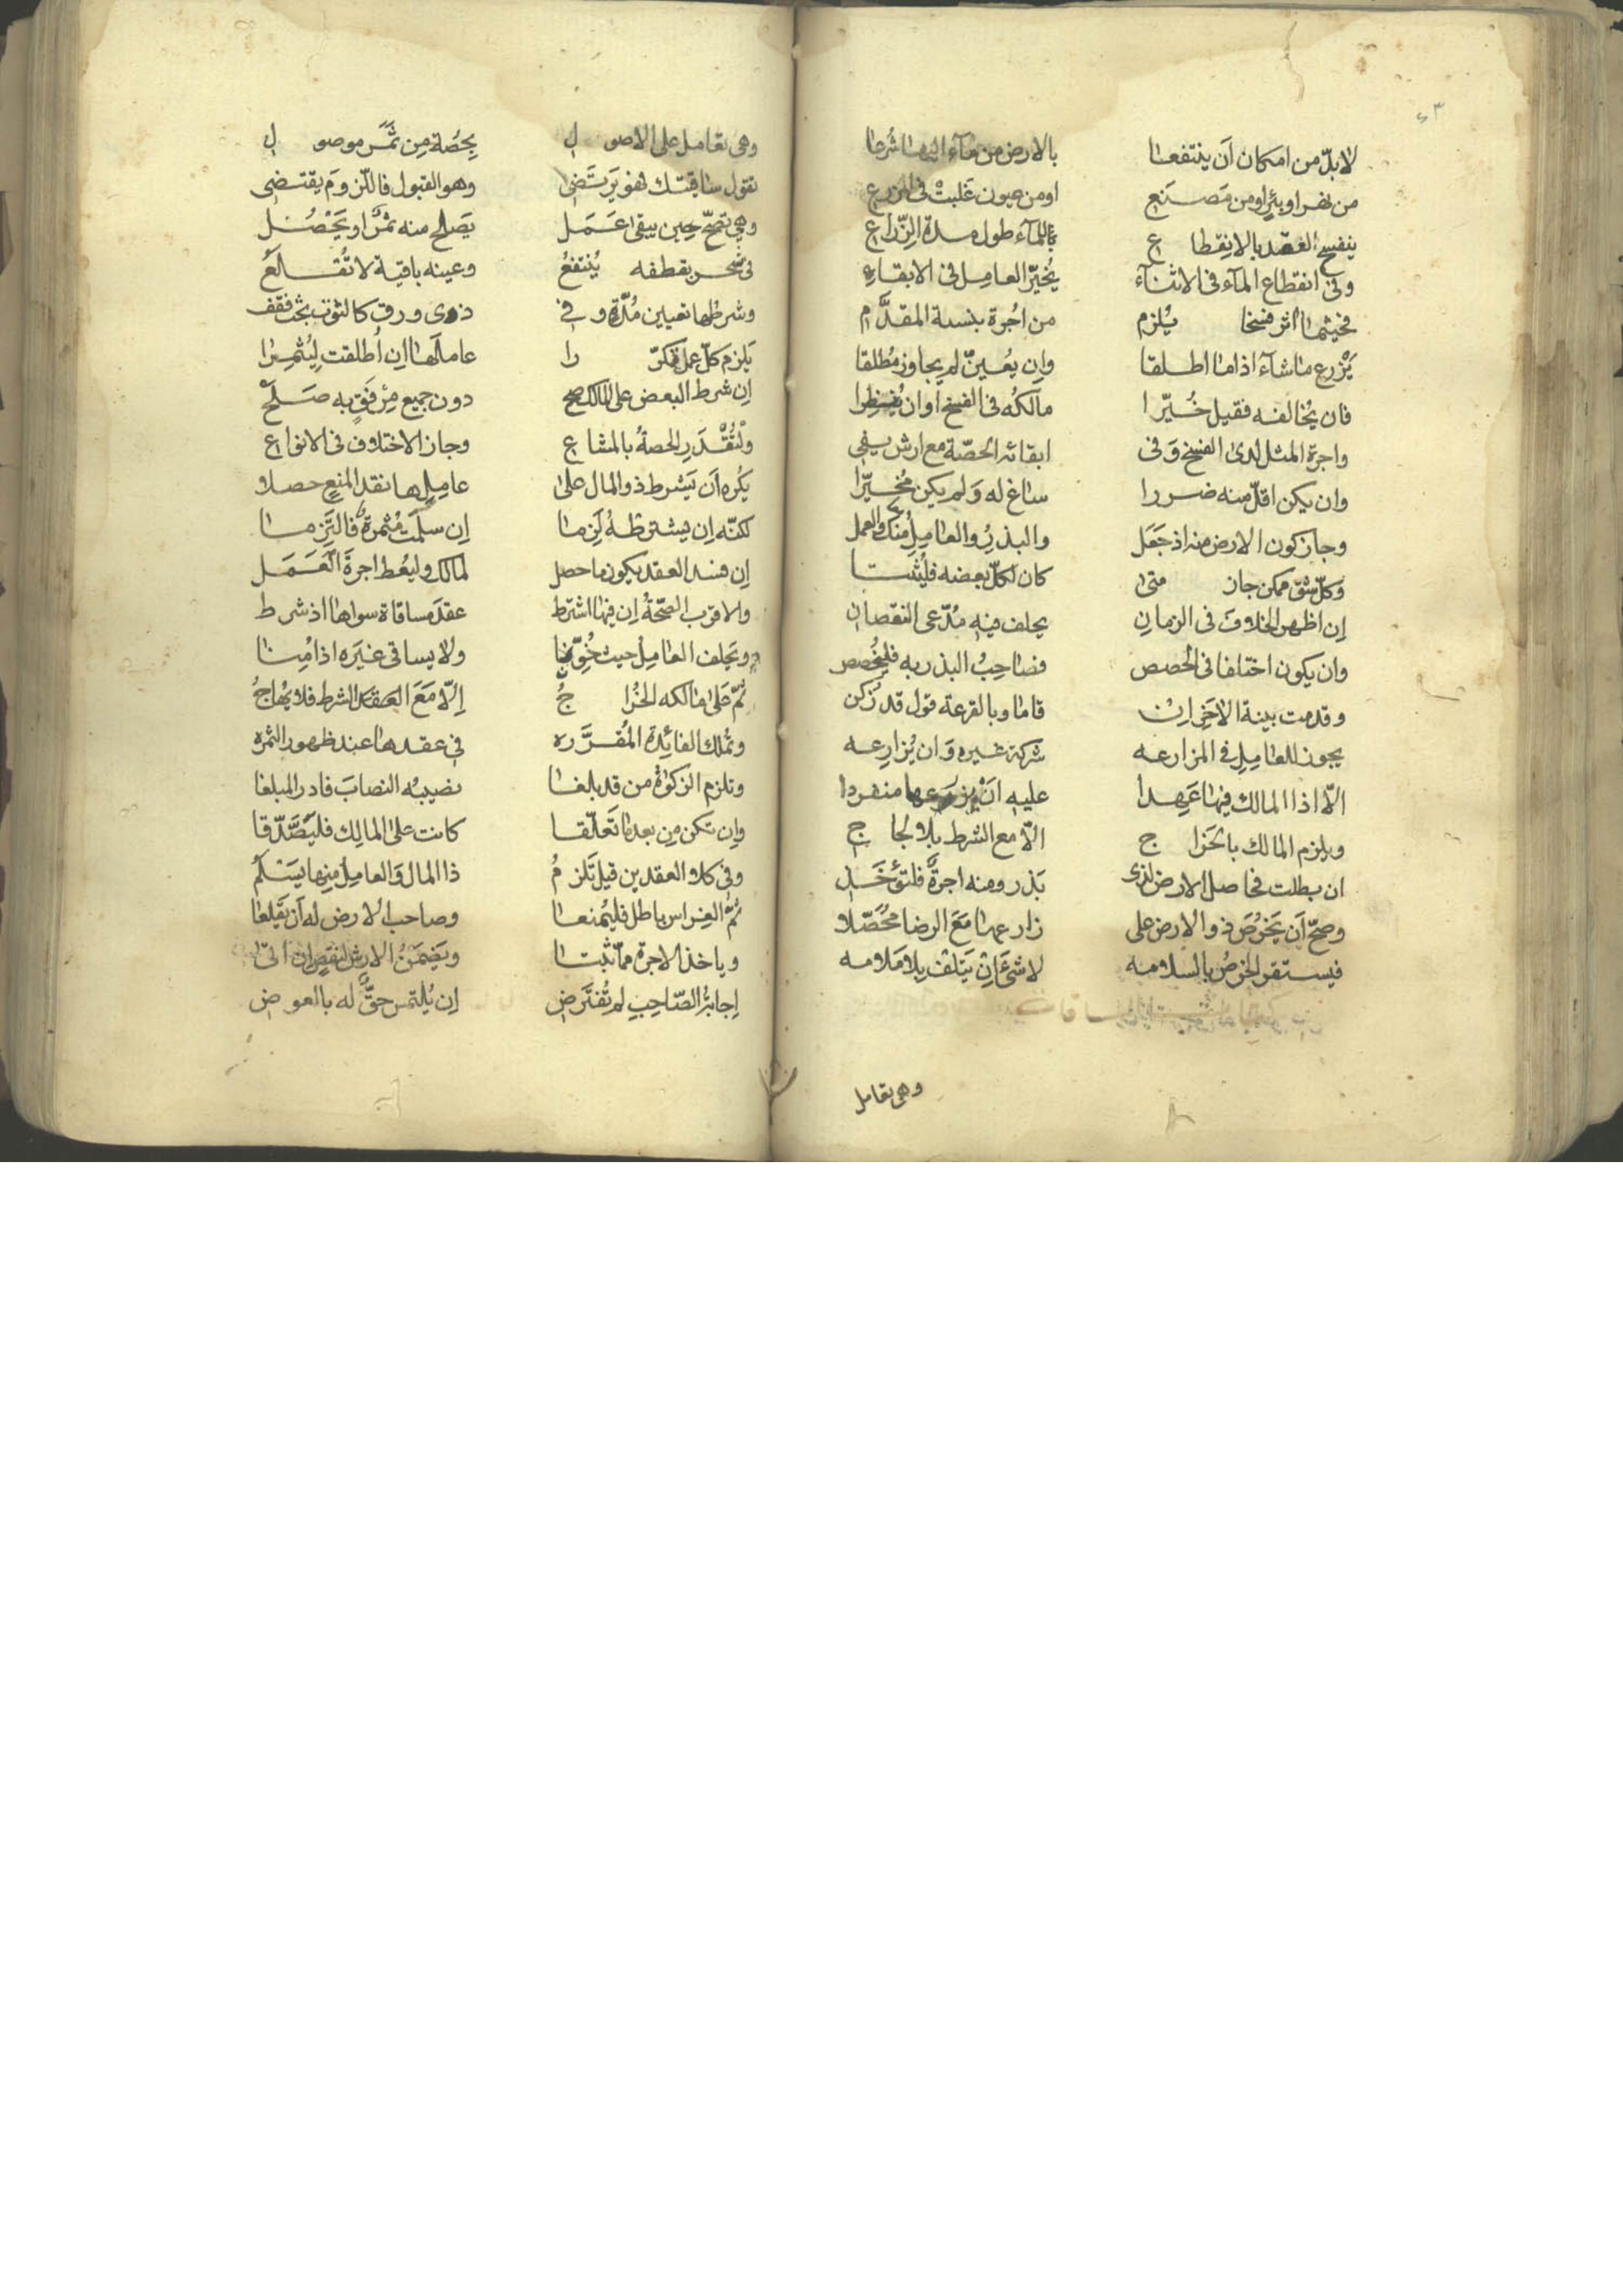 ٤٣
لابدّ من امكان اَن ينتفعا بالارض من مآء اليها شُرعا
من نهر او بئرٍ او من مَصنَع او من عيون غَلبتْ فى الزرع
ينفسخ العقد بالانقطاع بالمآء طول مدة الزّراع
وفى انقطاع المآء فى الاثنآء يُخيّر العامِل فى الابقاء
فحيثما اثر فسخا يُلزم من اُجرة بنسبة المقدَّم
يَزْرع ما شآء اذا ما اطلقا وان يُعيّن لم يجاوز مُطلقا
فان يُخالفه فقيل خُيّرا مالكُه فى الفسخ او ان
واجرة المثل لدى الفسخ وَفى ابقائه الحصّة مع ارش يفى
وان يكن اقلّ منه ضررا ساغ له وَلم يكن مُخيّرا
وجاز كون الارض منه اذ جَعَل والبذرُ والعامِلُ منك والعمل
وكلّ شقّ ممكن جاز متى كان لكلّ بعضه فليُثبتا
اِن اظهر الخلافَ فى الزمانِ يحلف فيه مُدّعى النقصان
وان يكون اختلفا فى الحصص فصاحِبُ البذر به
وقدمت بينة الاخر ان قاما وبالقرعة قول قد زُكن
يجوز للعامِلِ فى المزارعه شركة غيره وَان يُزارِعه
الّا اذا المالك فيها عَهدا عليه انْ يزرعها منفردا
ويلزم المالك بالخَراج الّا مع الشرط بلا لجاج
ان بطلت فحاصل الارض لذى بَذر ومنه اجرةً فلتؤخَذ
وصحّ اَن يَخرُصَ ذو الارض على زارعها مَعَ الرضا مُحَصّلا
فيستقر الخرصُ بالسلامه لا شئَ اِن يَتلف بلا مَلامه
وهى تعامل
وهى تعامل على الاصول بِحصّة مِن ثَمَر موصول
تقول ساقيتك لفو يَرتَضى وهو القبول فاللّزوم يقتضى
وهى تصحّ حين يبقى عَمَل يَصلح منه ثمرٌ او يَحْصُل
فى شجر بقطفه يُنتفعُ وعينه باقية لا تُقلعُ
وشرطُها تعيين مُدّةٍ وفى ذوى ورق كالتوت بحث فقف
يَلزم كلّ عمل تكرّرا عاملَها اِن اُطلقت لِيُثمِرا
اِن شرط البعض على المالك صح دون جميع مِرْفَقٍ به صَلَحْ
ولْتُقْدَرِ الحصةُ بالمشاع وجاز الاختلاف فى الانواع
يُكره اَن يَشرط ذو المال على عاملِها نقد المنع حصلا
لكنّه اِن يشترطهُ لَزِما اِن سلمَت مُثمِرةً فالتُزما
اِن فسد العقد يكون ما حصل لمالك وليُعط اجرةَ العَمَل
والاقرب الصّحّةُ اِن فيها اشترط عقدَ مساقاة سواها اذ شرط
ويحلف العامِلُ حيث خُوّنا ولا يساقى غيرَه اذا مُنا
ثمّ على مالكه الخُراجُ اِلّا مَعَ الشرط فلا يُهاجُ
وتُملك الفائِدة المُقرَّره فى عقدها عند ظهور الثمره
وتلزم الزكوةُ من قد بلغا نصيبُه النصابَ فادر المبلغا
وان تكن مِن بعد ما تَعلّقا كانت على المالِك فليَصَّدّقا
وفى كلا العقدين قيل تَلزمُ ذا المال وَالعامِلُ منها يَسْلَمُ
ثمّ الغِراس باطل فليُمنعا وصاحب الارض له اَن يَقلعا
وياخذ الاجرة ممّا ثبتا ويَضمَنُ الارش لنقص ان اتى
اِجابةُ الصّاحِبِ لم تُفترَض اِن يُلتمس حقٌّ له بالعوض